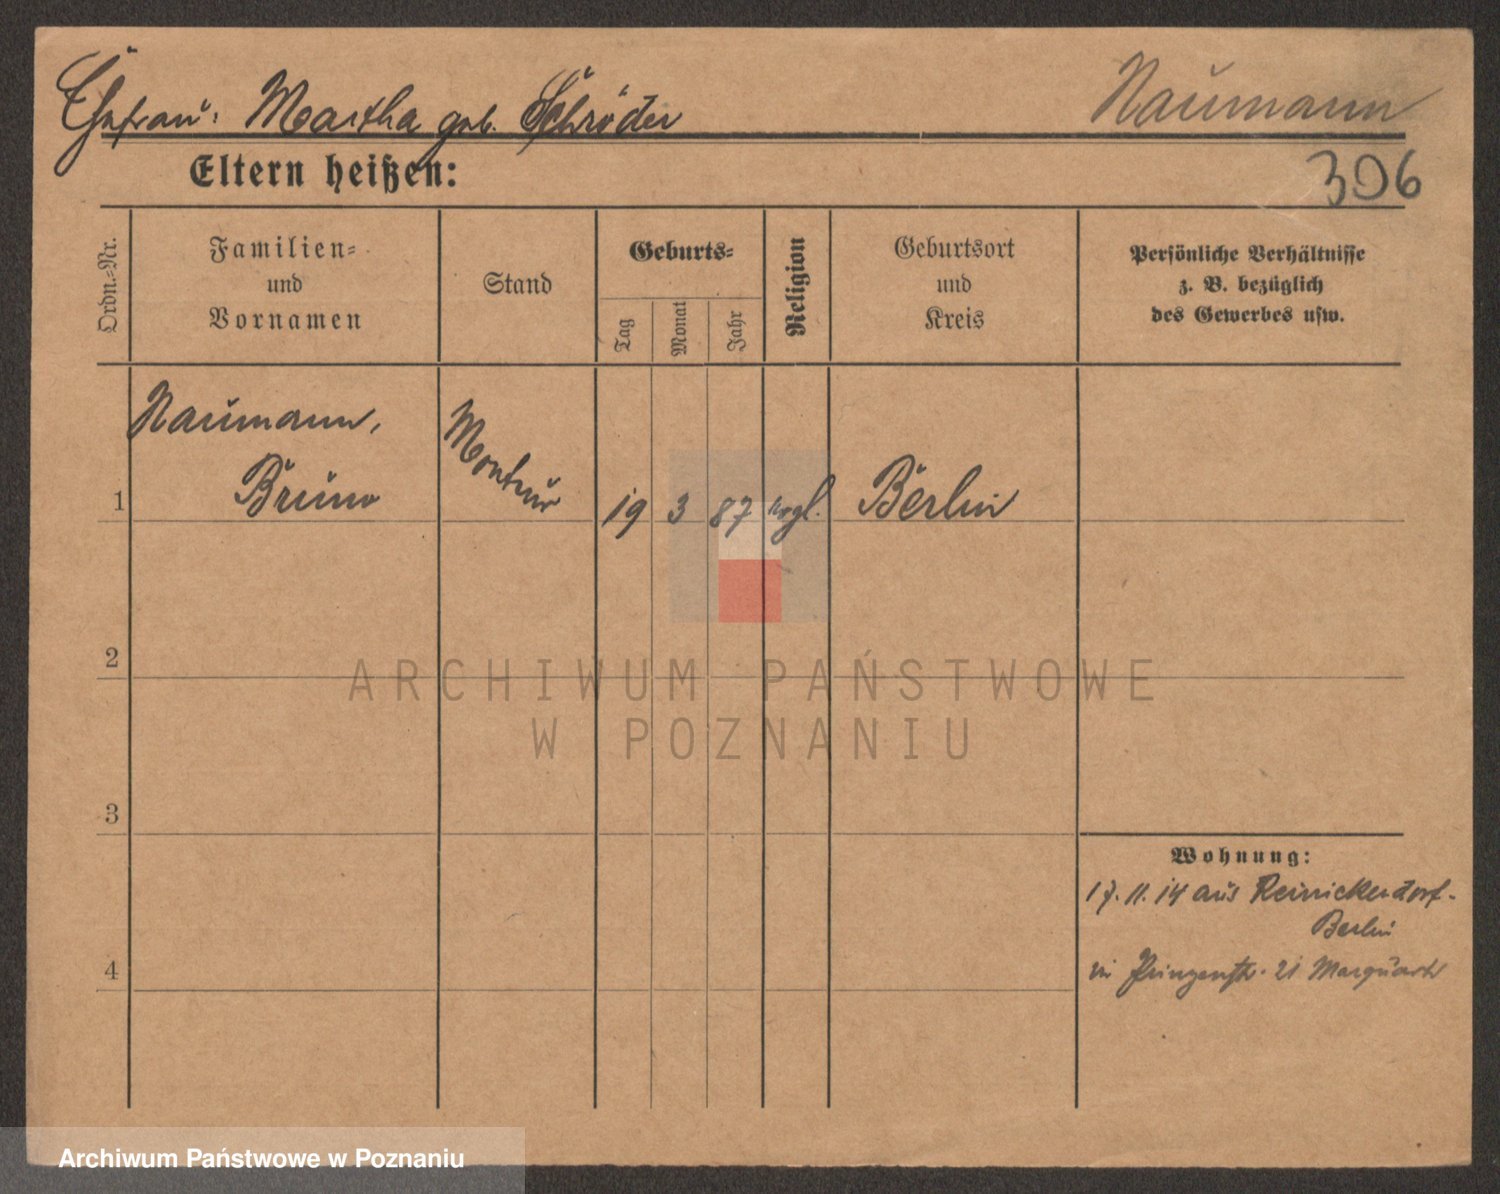 Naumann
Ehefrau: Martha geb. Schröder
306
Eltern heißen:
Ordn.-Nr.
Familien-
und
Vornamen
Stand
Geburts-
Tag
Monat
Jahr
Religion
Geburtsort
und
Kreis
Persönliche Verhältnisse
z. B. bezüglich
des Gewerbes usw.
Naumann,
Bruno
Monteur
1
19
3
87
evgl.
Berlin
2
ARCHIWUM PAŃSTWOWE
W POZNANIU
3
Wohnung:
17. 11. 14 aus Reinickendorf-
Berlin
4
in Prinzenstr. 21
Archiwum Państwowe w Poznaniu